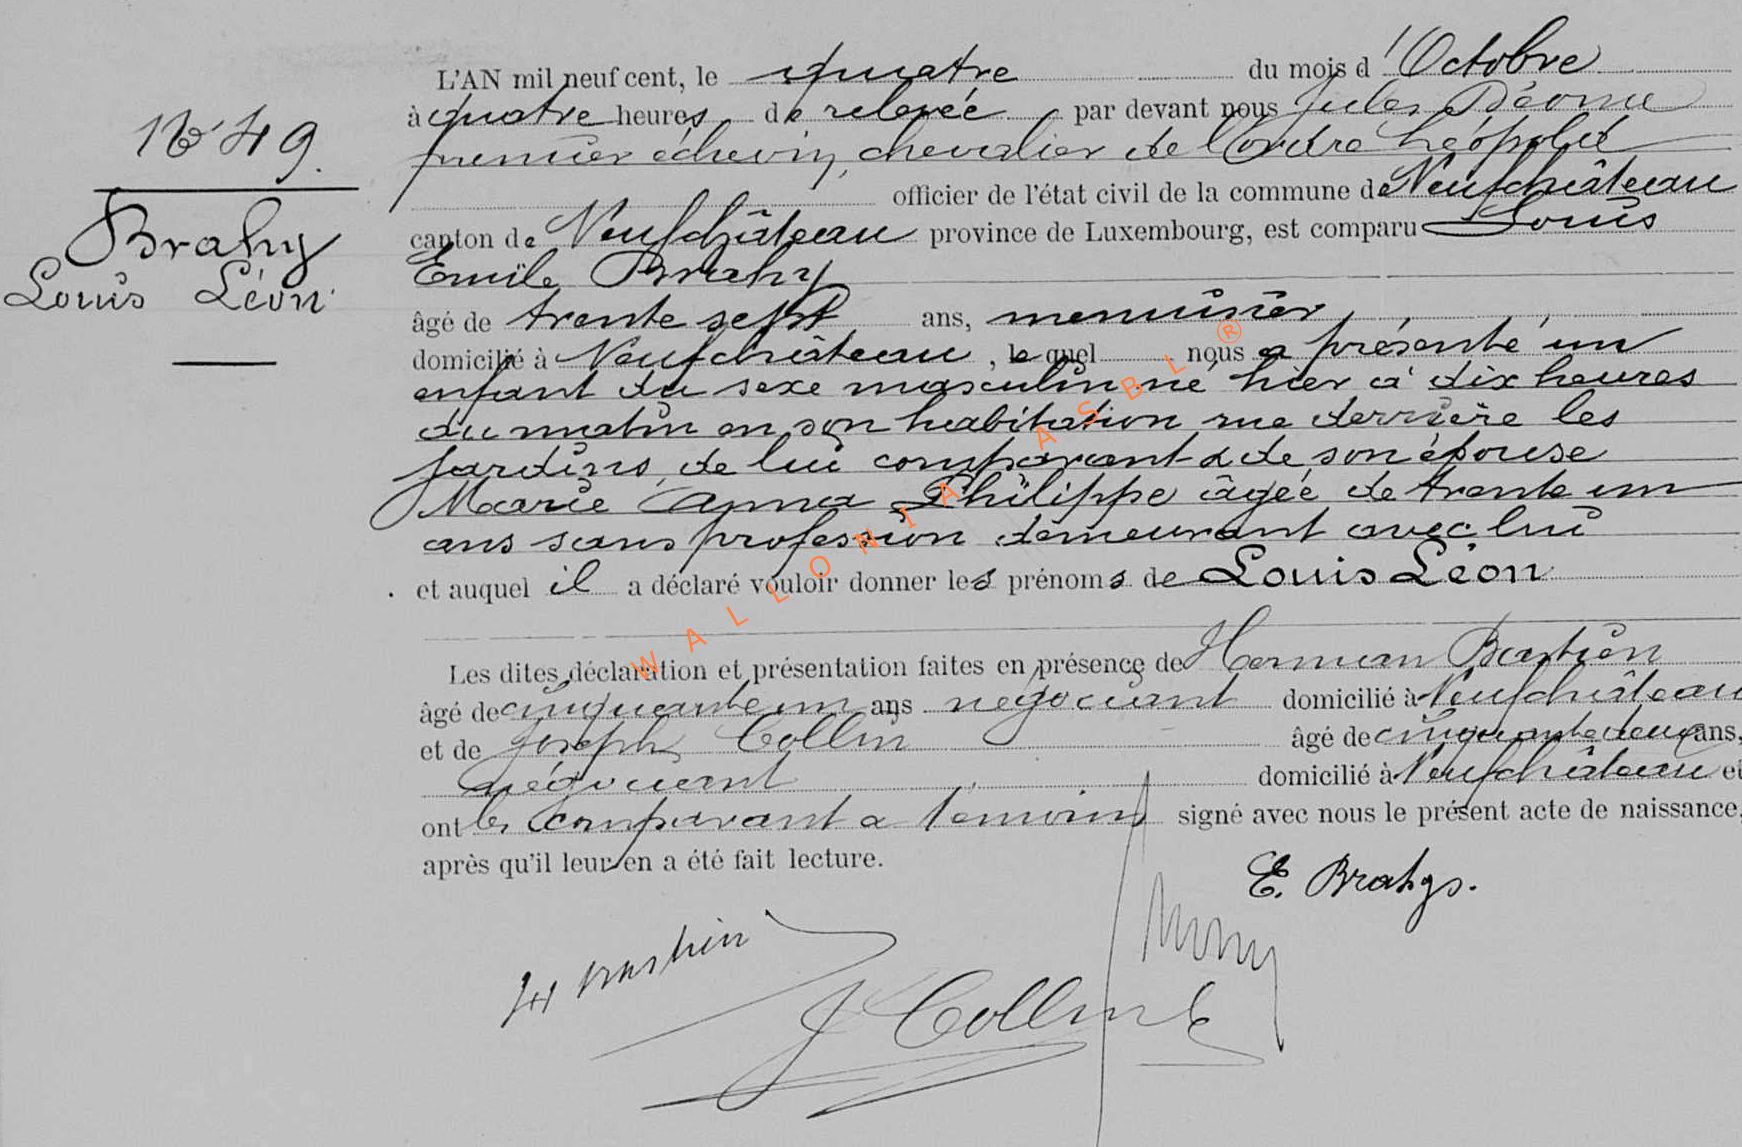 N° 49.
Brahy
Louis Léon
L'AN mil neuf cent, le quatre du mois d'Octobre
à quatre heures de relevée par devant nous Jules
premier échevin, chevalier de l'ordre Léopold
officier de l'état civil de la commune de Neufchâteau
canton de Neufchâteau province de Luxembourg, est comparu Louis
Emile Brahy
âgé de trente sept ans, menuisier
domicilié à Neufchâteau, lequel nous a présenté un
enfant du sexe masculin né hier à dix heures
du matin en son habitation rue derrière les
jardins, de lui comparant & de son épouse
Marie Anna Philippe âgée de trente un
ans sans profession demeurant avec lui
et auquel il a déclaré vouloir donner les prénoms de Louis Léon
Les dites déclaration et présentation faites en présence de Herman Bastien
âgé de cinquante un ans négociant domicilié à Neufchâteau
et de Joseph Collin âgé de cinquante deux ans,
négociant domicilié à Neufchâteau et
ont les comparant & témoins signé avec nous le présent acte de naissance,
après qu'il leur en a été fait lecture.
E. Brahy.
H Bastien
J Collin
WALLONIA ASBL ®